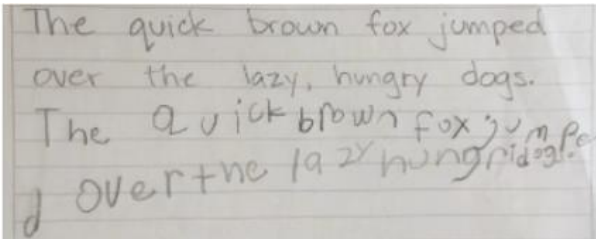 The quick brown fox jumped
over the lazy, hungry dogs.
The quick brown fox jumpe
d over the lazy hungridogs.